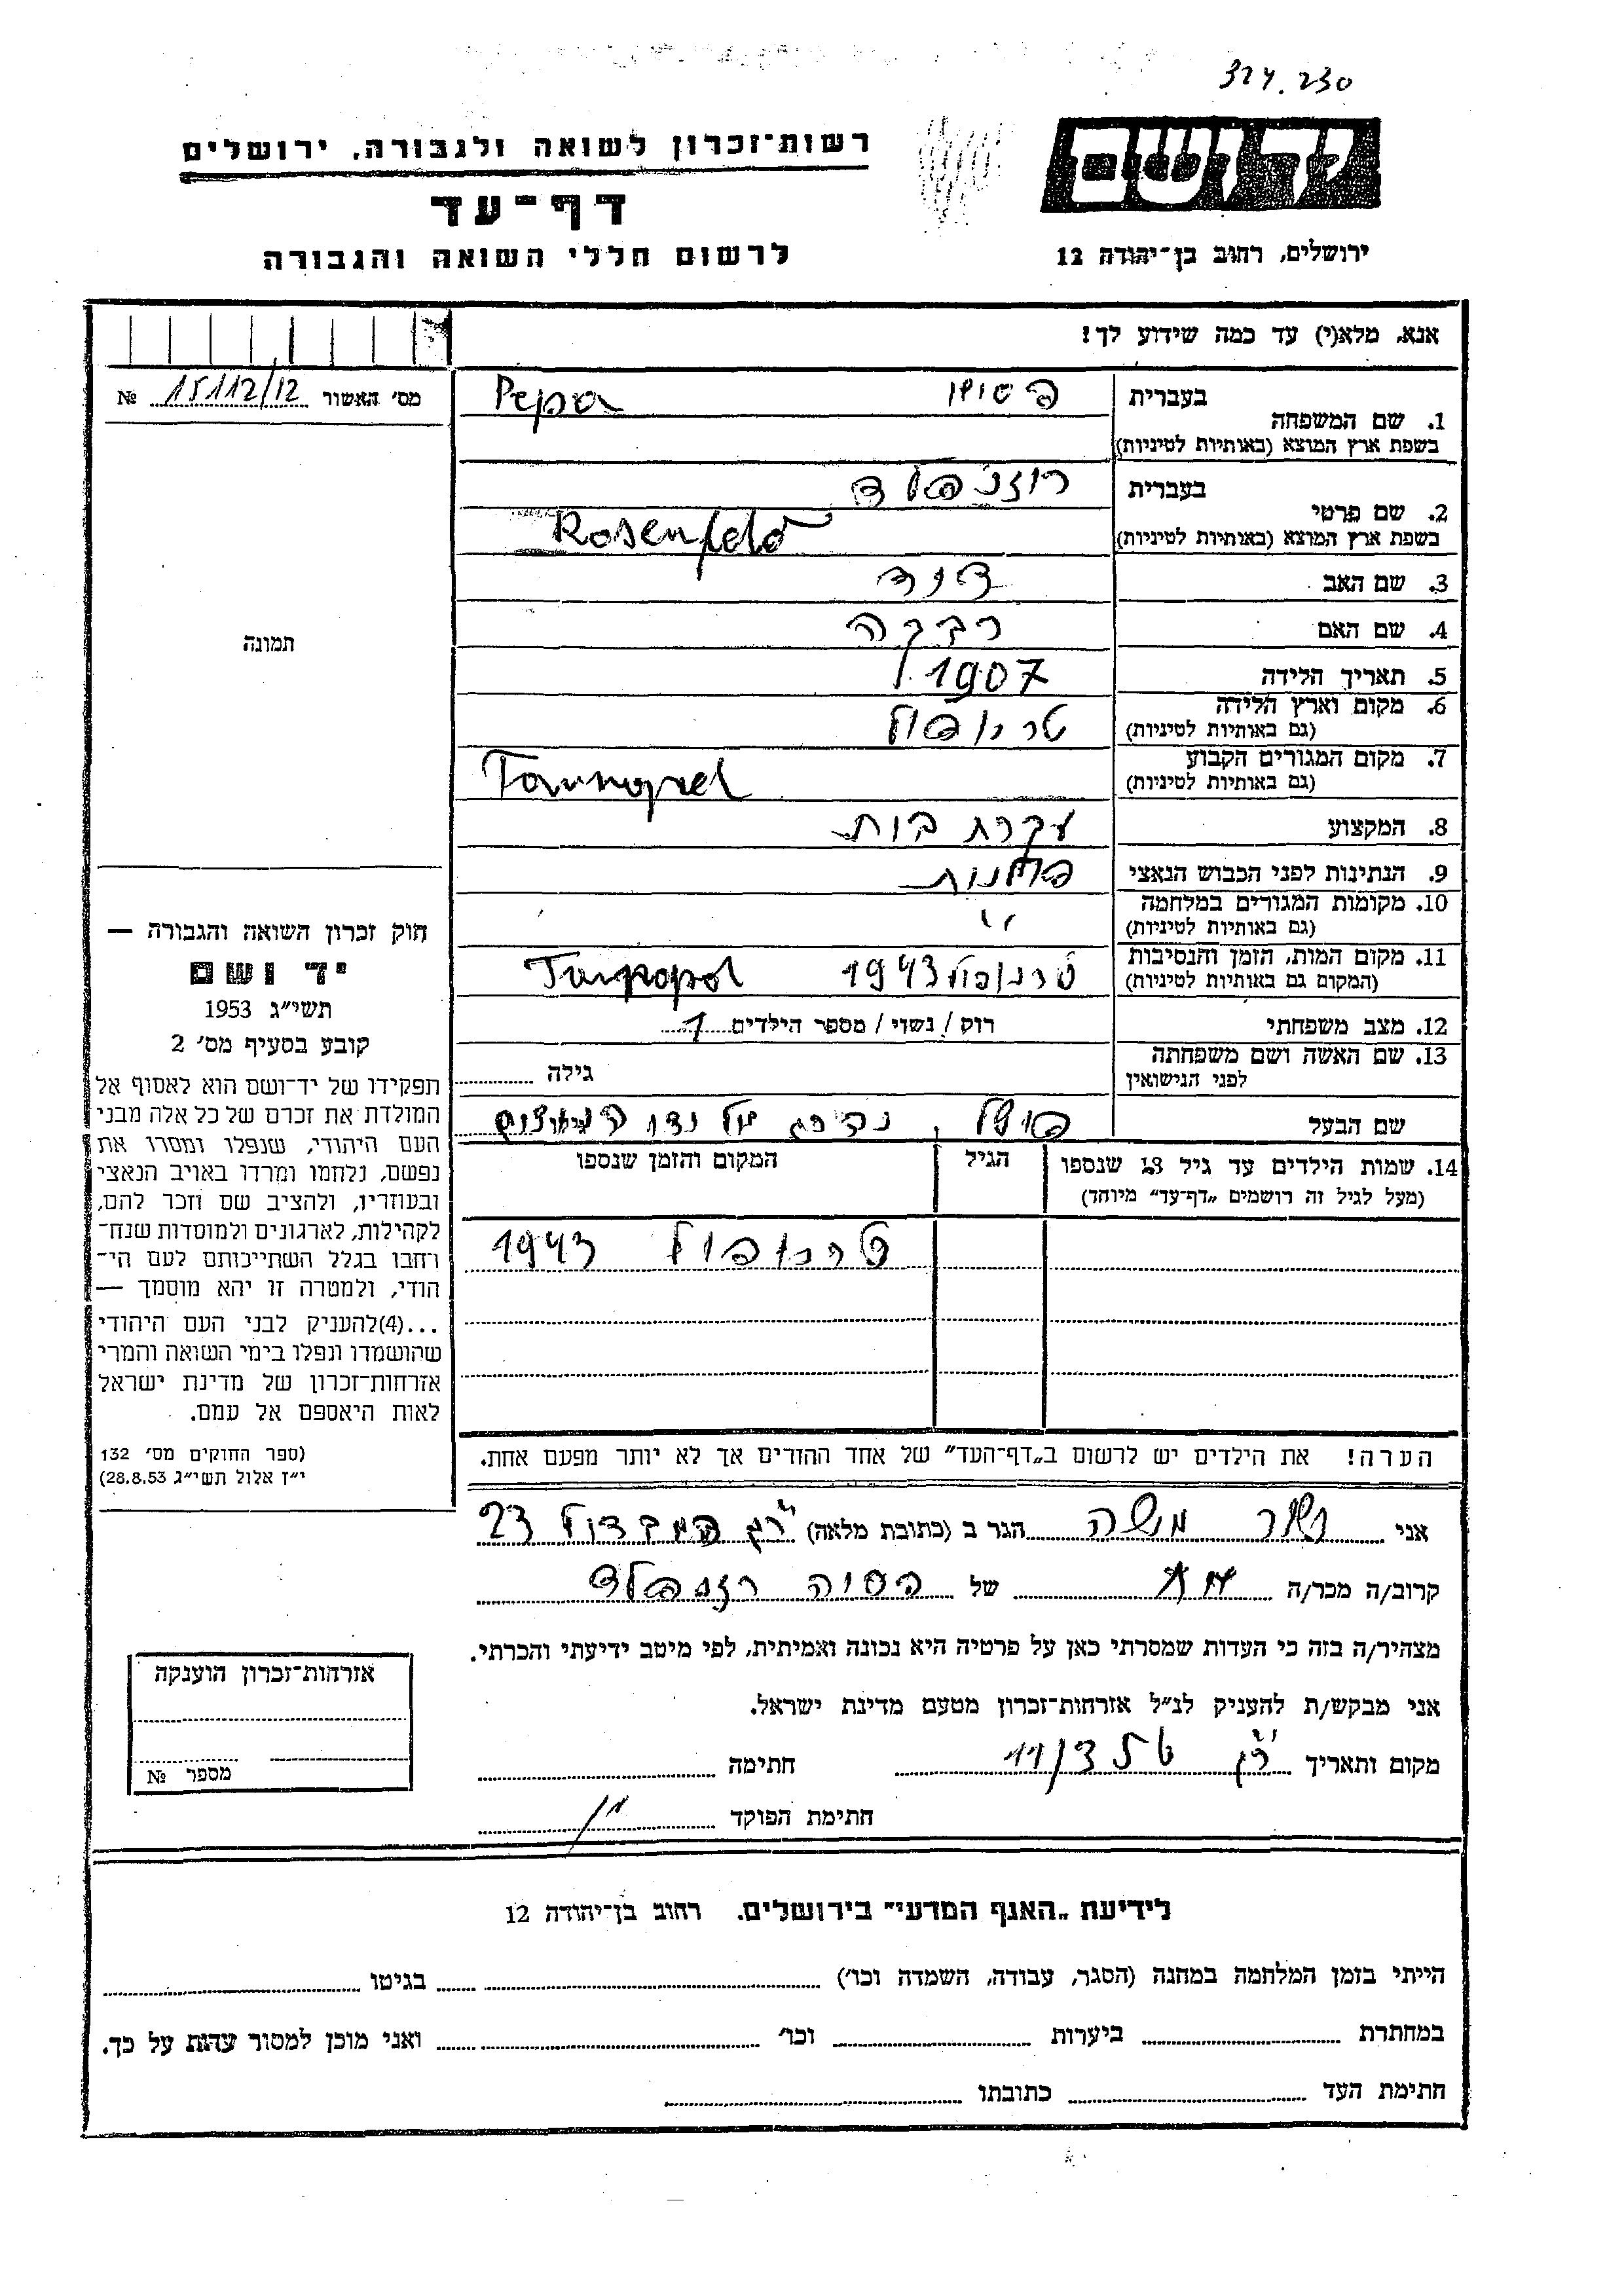 324.230
רשות־זכרון לשואה ולגבורה, ירושלים
דף־עד
לרשום חללי השואה והגבורה
יד ושם
ירושלים, רחוב בן־יהודה 12
אנא, מלא(י) עד כמה שידוע לך!
מס׳ האשור 15112/12 №
1. שם המשפחה בעברית Pepa
בשפת ארץ המוצא (באותיות לטיניות)
2. שם פרטי בעברית רוזנפלד
בשפת ארץ המוצא (באותיות לטיניות) Rosenfeld
3. שם האב דוד
4. שם האם רבקה
5. תאריך הלידה 1907
6. מקום וארץ הלידה טרנופול
(גם באותיות לטיניות)
7. מקום המגורים הקבוע
(גם באותיות לטיניות)
8. המקצוע עקרת בית
9. הנתינות לפני הכבוש הנאצי פולנית
10. מקומות המגורים במלחמה
(גם באותיות לטיניות)
11. מקום המות, הזמן והנסיבות טרנופול 1943 Tarnopol
(המקום גם באותיות לטיניות)
12. מצב משפחתי רוק / נשוי / מספר הילדים 1
13. שם האשה ושם משפחתה
לפני הנישואין גילה
שם הבעל
14. שמות הילדים עד גיל 18 שנספו הגיל המקום והזמן שנספו
(מעל לגיל זה רושמים „דף־עד״ מיוחד)
טרנופול 1943
הערה! את הילדים יש לרשום ב„דף־העד״ של אחד ההורים אך לא יותר מפעם אחת.
תמונה
חוק זכרון השואה והגבורה —
יד ושם
תשי״ג 1953
קובע בסעיף מס׳ 2
תפקידו של יד־ושם הוא לאסוף אל
המולדת את זכרם של כל אלה מבני
העם היהודי, שנפלו ומסרו את
נפשם, נלחמו ומרדו באויב הנאצי
ובעוזריו, ולהציב שם וזכר להם,
לקהילות, לארגונים ולמוסדות שנח־
רחבו בגלל השתייכותם לעם הי־
הודי, ולמטרה זו יהא מוסמך —
...(4)להעניק לבני העם היהודי
שהושמדו ונפלו בימי השואה והמרי
אזרחות־זכרון של מדינת ישראל
לאות היאספם אל עמם.
(ספר החוקים מס׳ 132
י״ז אלול תשי״ג 28.8.53)
אני משה הגר ב (כתובת מלאה) 23
קרוב/ה מכר/ה של רזנפלד
מצהיר/ה בזה כי העדות שמסרתי כאן על פרטיה היא נכונה ואמיתית, לפי מיטב ידיעתי והכרתי.
אני מבקש/ת להעניק לנ״ל אזרחות־זכרון מטעם מדינת ישראל.
מקום ותאריך חתימה
חתימת הפוקד
אזרחות־זכרון הוענקה
מספר №
לידיעת „האגף המדעי״ בירושלים. רחוב בן־יהודה 12
הייתי בזמן המלחמה במחנה (הסגר, עבודה, השמדה וכו׳) בגיטו
במחתרת ביערות וכו׳ ואני מוכן למסור עדות על כך.
חתימת העד כתובתו